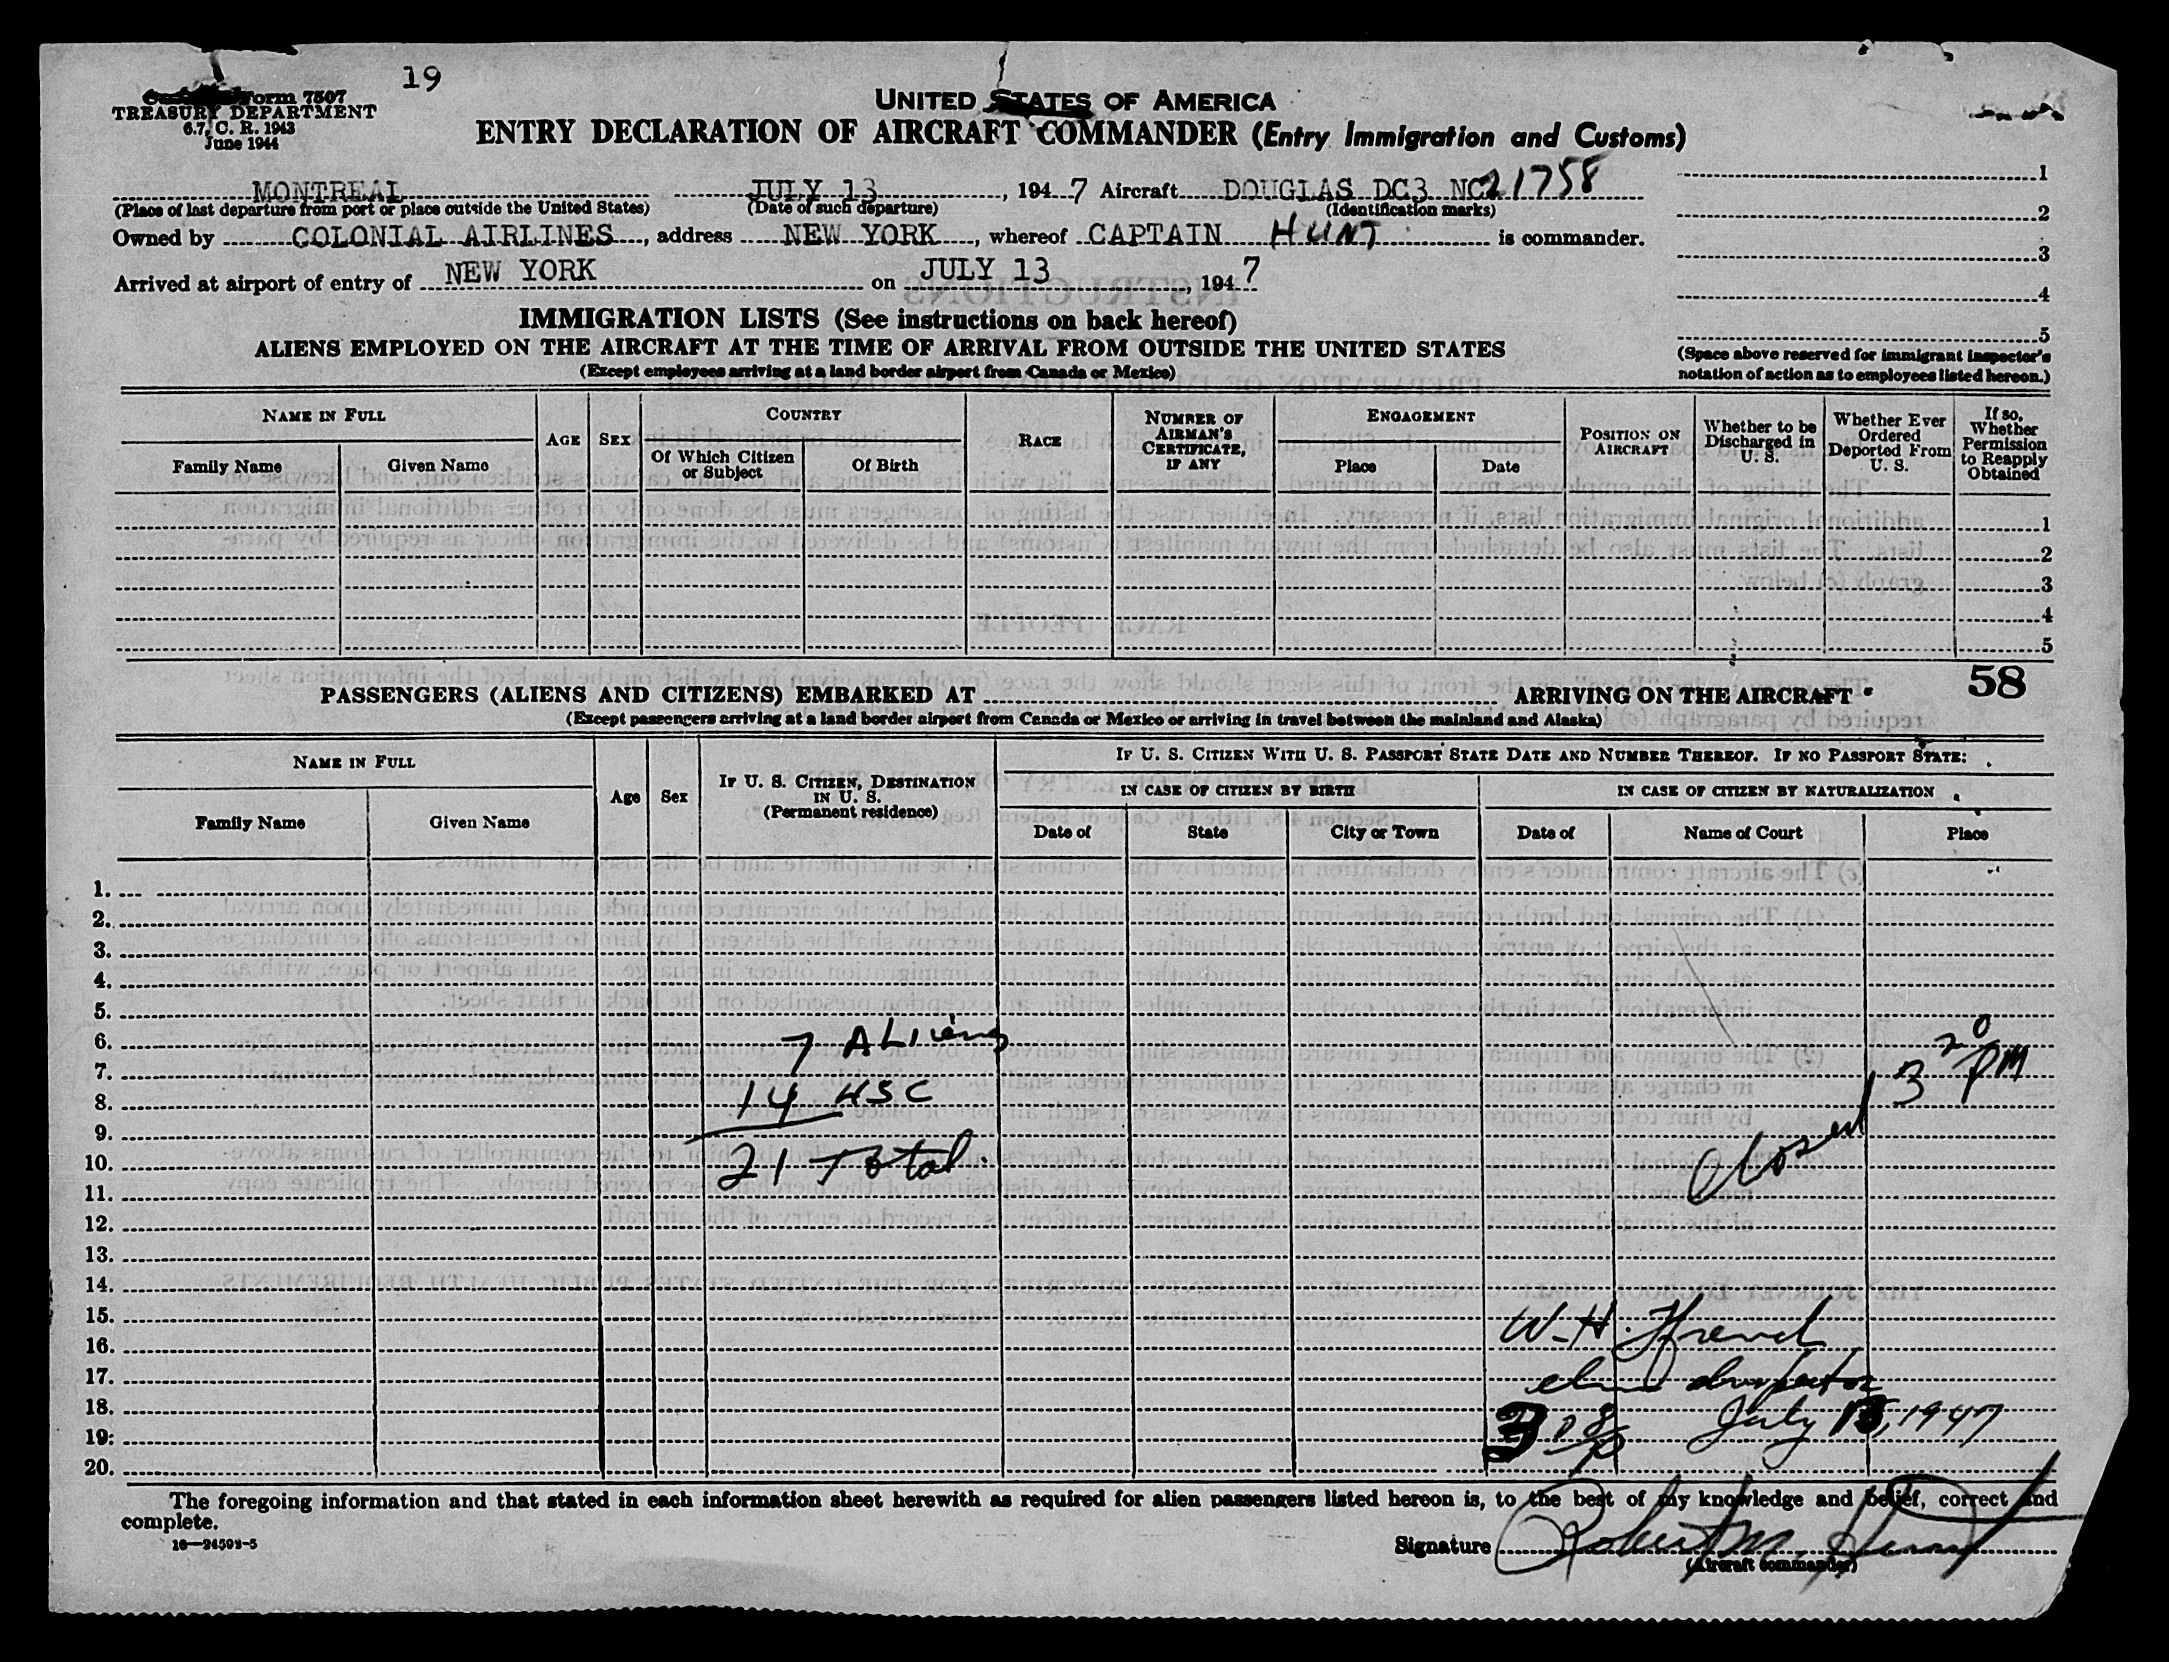 19
Form 7507
TREASURY DEPARTMENT
6.7, C. R. 1943
June 1944
UNITED STATES OF AMERICA
ENTRY DECLARATION OF AIRCRAFT COMMANDER (Entry Immigration and Customs)
MONTREAL JULY 13, 1947 Aircraft DOUGLAS DC3 NC21758
(Place of last departure from port or place outside the United States) (Date of such departure) (Identification marks)
Owned by COLONIAL AIRLINES, address NEW YORK, whereof CAPTAIN HUNT is commander.
Arrived at airport of entry of NEW YORK on JULY 13, 1947
1
2
3
4
5
(Space above reserved for immigrant inspector's
notation of action as to employees listed hereon.)
IMMIGRATION LISTS (See instructions on back hereof)
ALIENS EMPLOYED ON THE AIRCRAFT AT THE TIME OF ARRIVAL FROM OUTSIDE THE UNITED STATES
(Except employees arriving at a land border airport from Canada or Mexico)
NAME IN FULL
Family Name
Given Name
AGE
SEX
COUNTRY
Of Which Citizen
or Subject
Of Birth
RACE
NUMBER OF
AIRMAN'S
CERTIFICATE,
IF ANY
ENGAGEMENT
Place
Date
POSITION ON
AIRCRAFT
Whether to be
Discharged in
U. S.
Whether Ever
Ordered
Deported From
U. S.
If so,
Whether
Permission
to Reapply
Obtained
1
2
3
4
5
58
PASSENGERS (ALIENS AND CITIZENS) EMBARKED AT ARRIVING ON THE AIRCRAFT
(Except passengers arriving at a land border airport from Canada or Mexico or arriving in travel between the mainland and Alaska)
NAME IN FULL
Family Name
Given Name
Age
Sex
IF U. S. CITIZEN, DESTINATION
IN U. S.
(Permanent residence)
IF U. S. CITIZEN WITH U. S. PASSPORT STATE DATE AND NUMBER THEREOF. IF NO PASSPORT STATE:
IN CASE OF CITIZEN BY BIRTH
Date of
State
City or Town
IN CASE OF CITIZEN BY NATURALIZATION
Date of
Name of Court
Place
1.
2.
3.
4.
5.
6. 7 ALiens 3 20 PM
7.
8. 14 USC
9. Closed
10. 21 Total.
11.
12.
13.
14.
15. W. H. French
16.
17. Inspector
18. July 13, 1947
19.
20.
The foregoing information and that stated in each information sheet herewith as required for alien passengers listed hereon is, to the best of my knowledge and belief, correct and
complete.
16—24593-5
Signature Robert M. Hunt
(Aircraft commander)